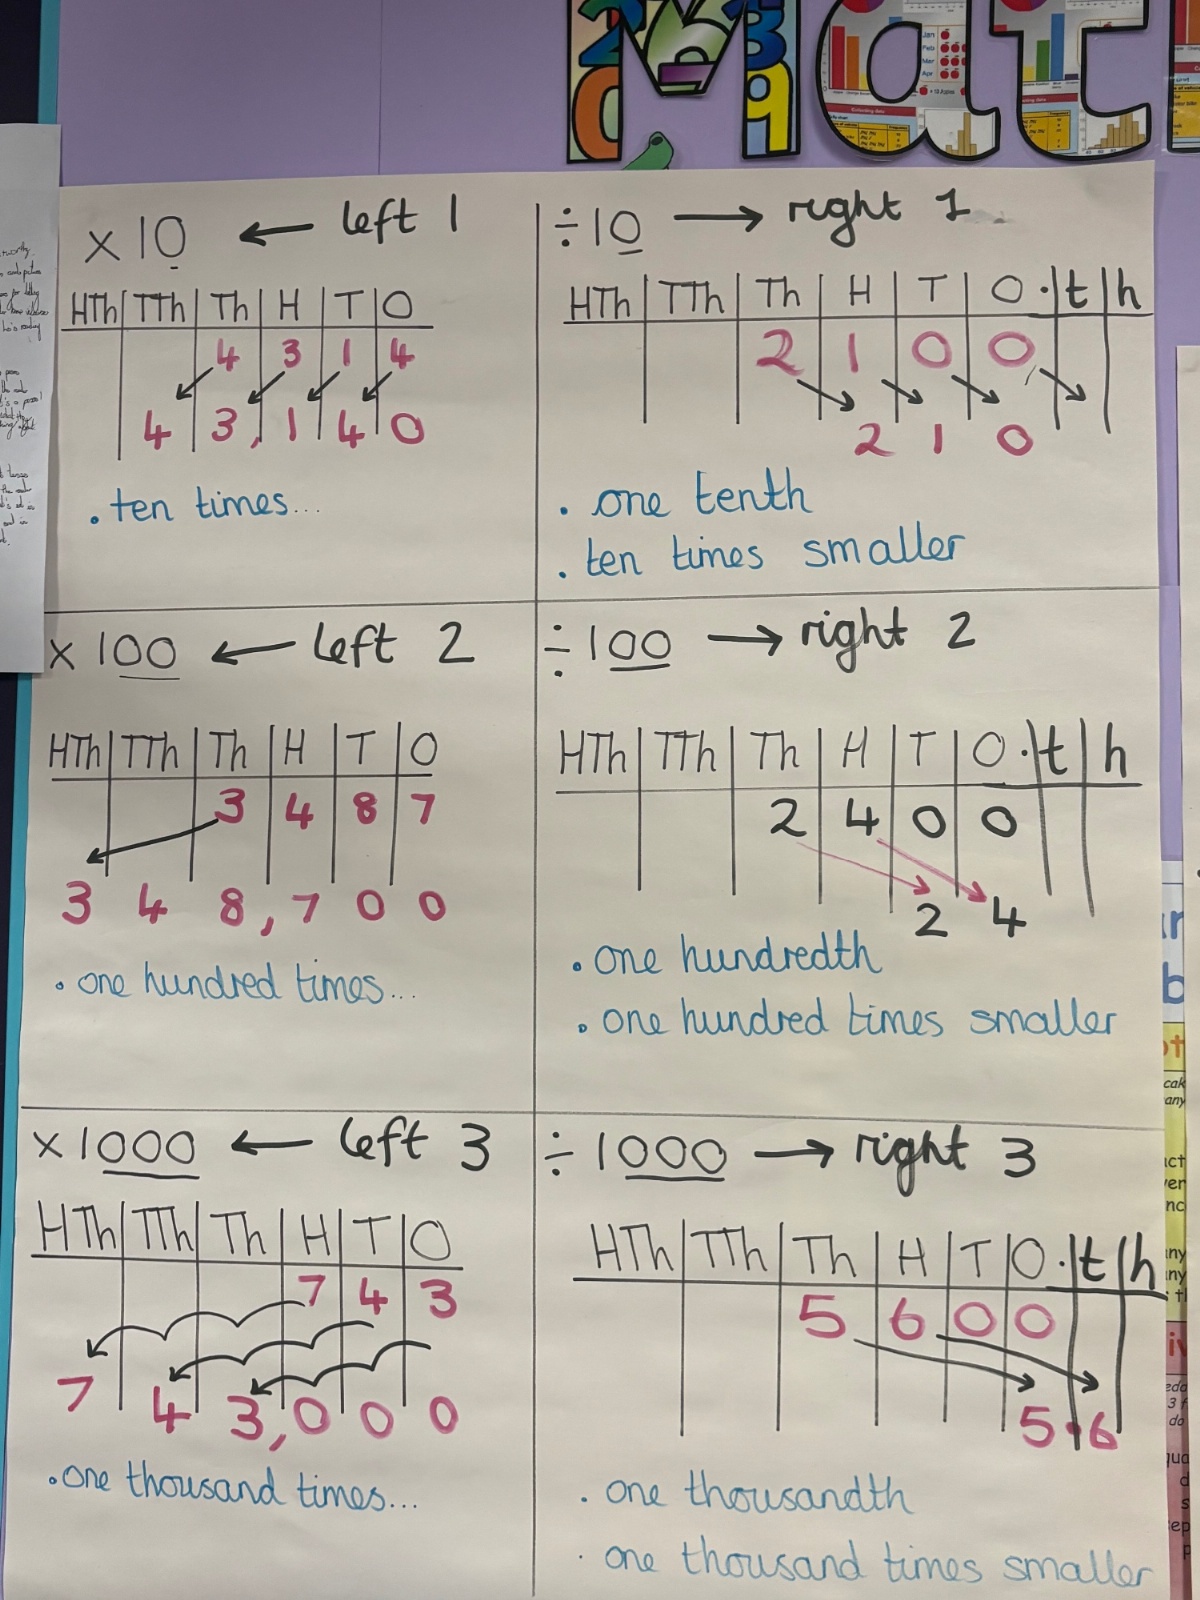 Mat
x 10 ← left 1
HTh TTh Th H T O
4 3 1 4
4 3, 1 4 0
. ten times...
÷ 10 → right 1
HTh TTh Th H T O . t h
2 1 0 0
2 1 0
. one tenth
. ten times smaller
x 100 ← left 2
HTh TTh Th H T O
3 4 8 7
3 4 8, 7 0 0
. one hundred times...
÷ 100 → right 2
HTh TTh Th H T O . t h
2 4 0 0
2 4
. one hundredth
. one hundred times smaller
x 1000 ← left 3
HTh TTh Th H T O
7 4 3
7 4 3, 0 0 0
. one thousand times...
÷ 1000 → right 3
HTh TTh Th H T O . t h
5 6 0 0
5 . 6
. one thousandth
. one thousand times smaller